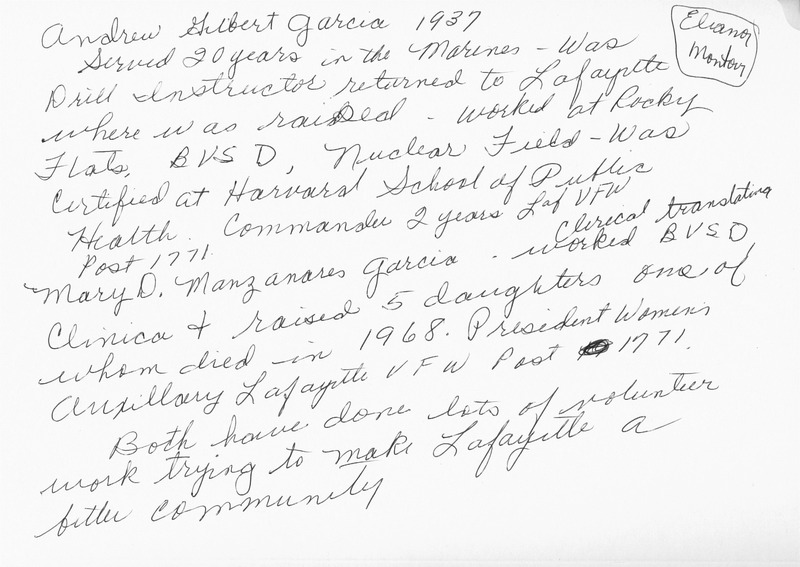 Andrew Gilbert Garcia 1937
Eleanor
Montour
Served 20 years in the Marines - Was
Drill Instructor returned to Lafayette
where was raised - worked at Rocky
Flats, BVSD, Nuclear Field - Was
Certified at Harvard School of Public
Health. Commander 2 years Laf VFW
Post 1771.
Clerical translating
Mary D. Manzanares Garcia - worked BVSD
Clinica & raised 5 daughters one of
whom died in 1968. President Womens
Auxillary Lafayette VFW Post 1771.
Both have done lots of volunteer
work trying to make Lafayette a
better community